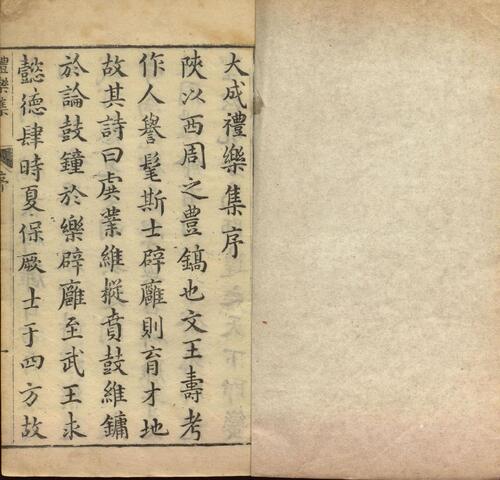 大成禮樂集序
陝以西周之豊鎬也文王壽考
作人譽髦斯士辟廱則育才地
故其詩曰虡業維摐賁鼓維鏞
於論鼓鐘於樂辟廱至武王求
懿德肆時夏保厥士于四方故
禮樂集
序
一